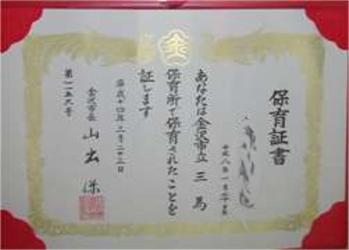 保育証書
平成八年一月
あなたは金沢市立三馬
保育所で保育されたことを
証します
平成十四年三月二十三日
金沢市長 山出保